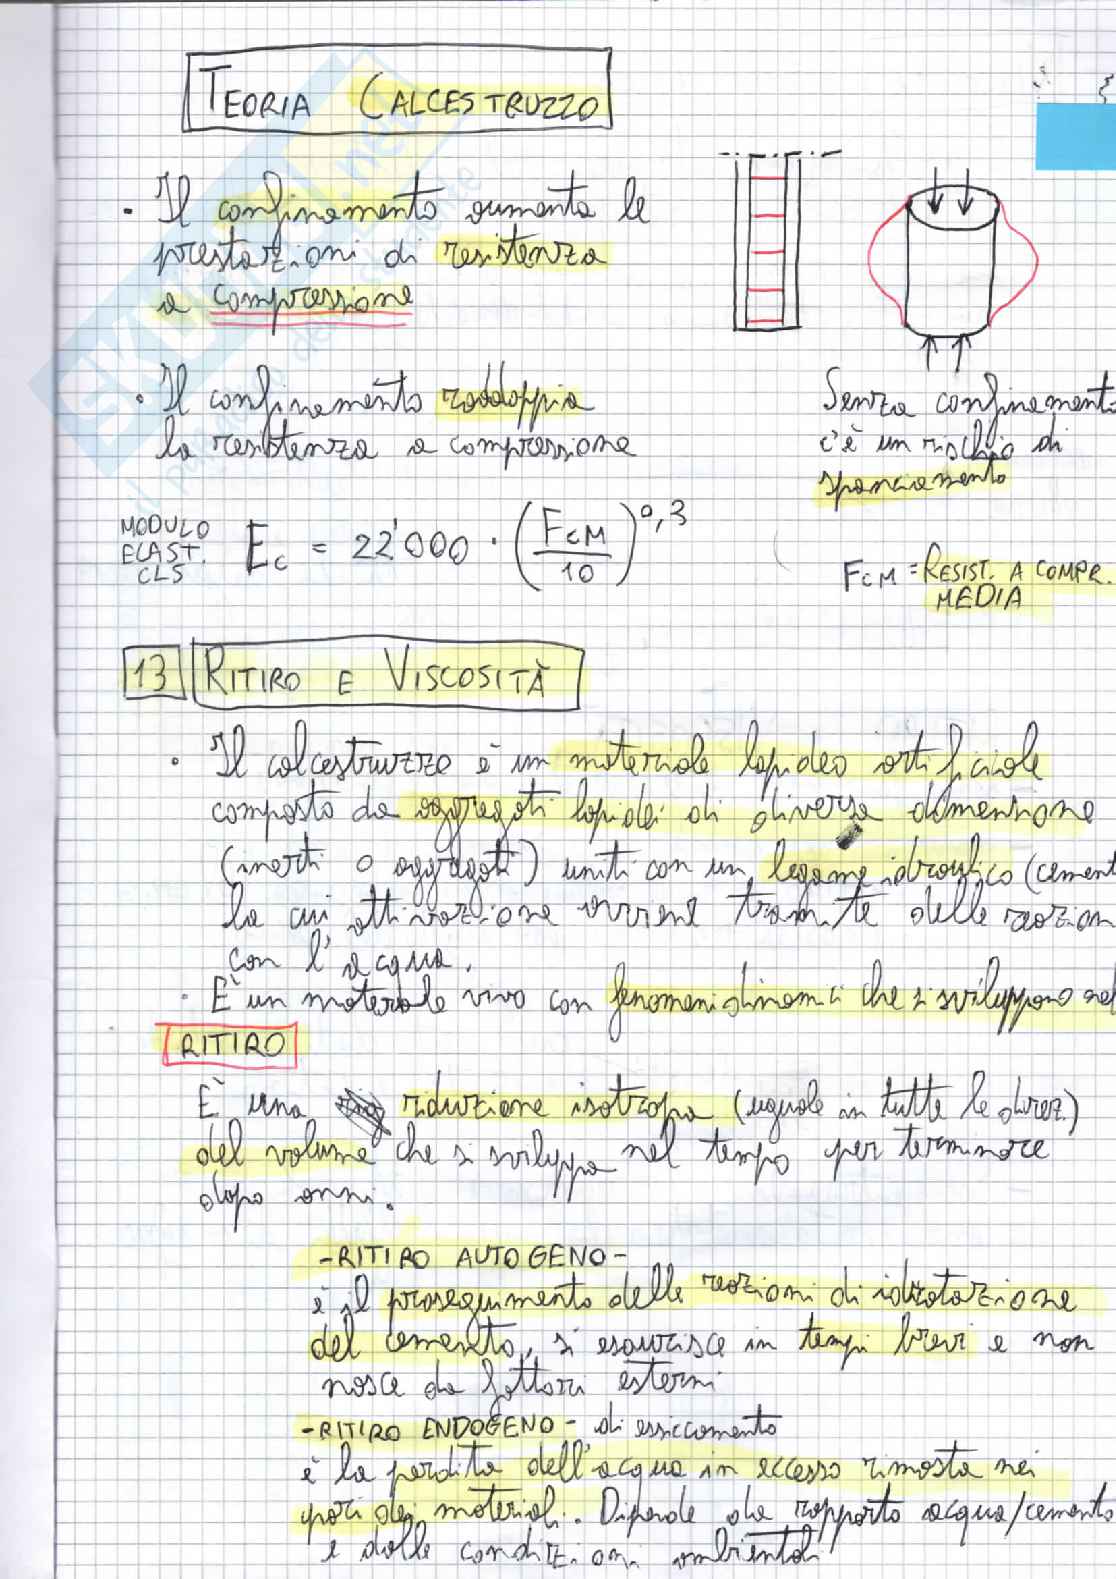 TEORIA CALCESTRUZZO
• Il confinamento aumenta le
prestazioni di resistenza
a compressione
• Il confinamento raddoppia
la resistenza a compressione
Senza confinamento
c'è un rischio di
spanciamento
MODULO
ELAST.
CLS
Ec = 22'000 · (FcM/10)^0,3
FcM = RESIST. A COMPR.
MEDIA
13 RITIRO E VISCOSITÀ
• Il calcestruzzo è un materiale lapideo artificiale
composto da aggregati lapidei di diversa dimensione
(inerti o aggregati) uniti con un legame idraulico (cement
la cui attivazione avviene tramite delle reazion
con l'acqua.
• È un materiale vivo con fenomeni dinamici che si sviluppano nel
RITIRO
È una riduzione isotropa (uguale in tutte le direz.)
del volume che si sviluppa nel tempo per terminare
dopo anni.
- RITIRO AUTOGENO -
è il proseguimento delle reazioni di idratazione
del cemento, si esaurisce in tempi brevi e non
nasce da fattori esterni
- RITIRO ENDOGENO - di essiccamento
è la perdita dell'acqua in eccesso rimasta nei
pori dei materiali. Dipende da rapporto acqua/cemento
e dalle condizioni ambientali
SKUOLA.net
il paradiso dello studente